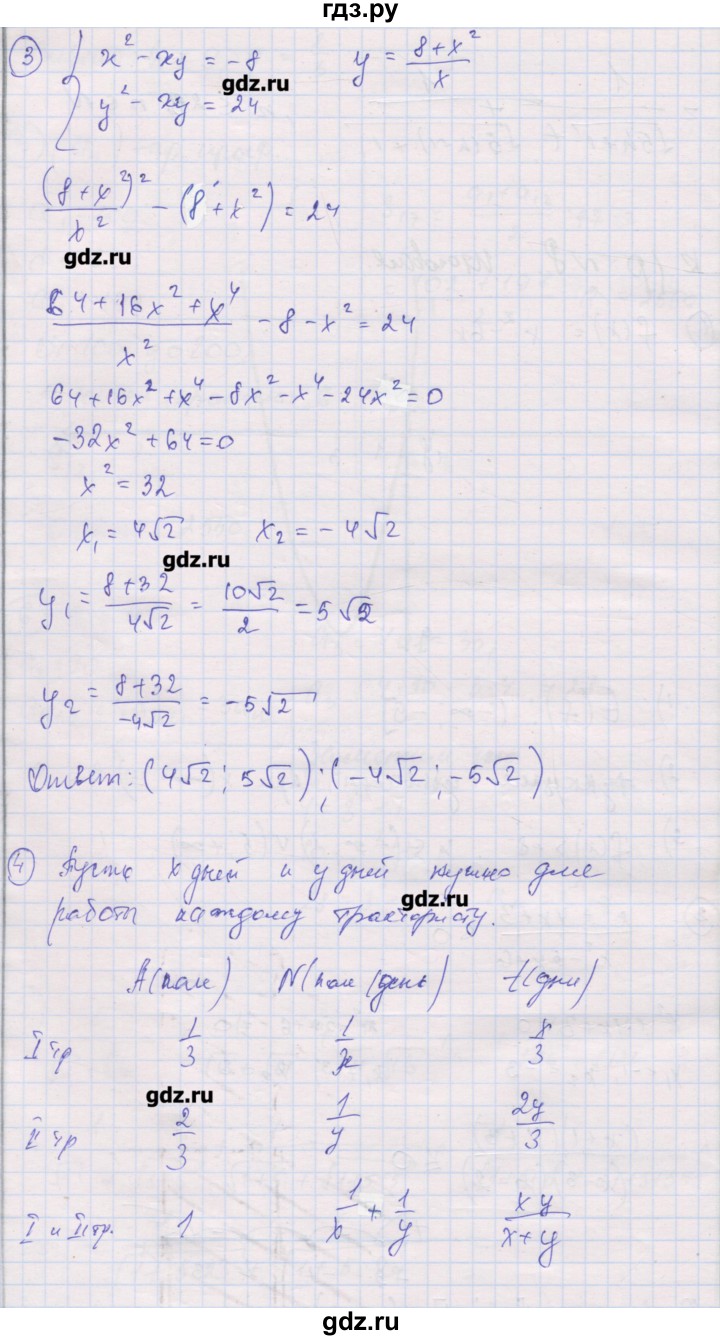 гдз.ру
3) { x² - xy = -8    y = (8+x²)/x
gdz.ru
y² - xy = 24
(8+x²)²/x² - (8+x²) = 24
gdz.ru
(64+16x²+x⁴)/x² - 8 - x² = 24
64+16x²+x⁴-8x²-x⁴-24x²=0
-32x²+64=0
x² = 32
x₁ = 4√2    x₂ = -4√2
gdz.ru
y₁ = (8+32)/(4√2) = (10√2)/2 = 5√2
y₂ = (8+32)/(-4√2) = -5√2
Ответ: (4√2; 5√2); (-4√2; -5√2)
4) Пусть x дней и y дней нужно для
gdz.ru
работы каждому трактористу.
A(поле)    N(поле/день)    t(дни)
I тр    1/3    1/x    x/3
gdz.ru
II тр    2/3    1/y    2y/3
I и II тр.    1    1/x + 1/y    xy/(x+y)
gdz.ru